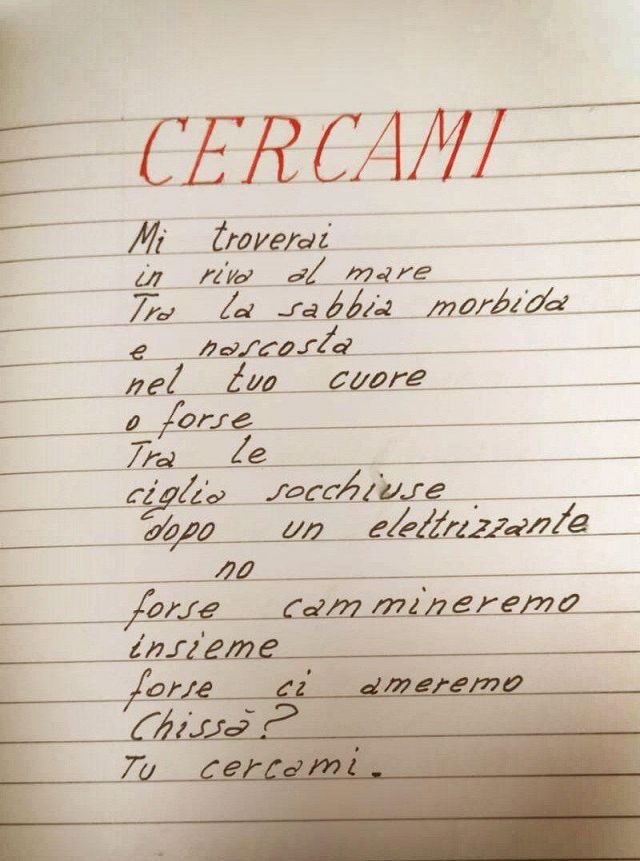 CERCAMI
Mi troverai
in riva al mare
Tra la sabbia morbida
e nascosta
nel tuo cuore
o forse
Tra le
ciglia socchiuse
dopo un elettrizzante
no
forse cammineremo
insieme
forse ci ameremo
Chissà?
Tu cercami.